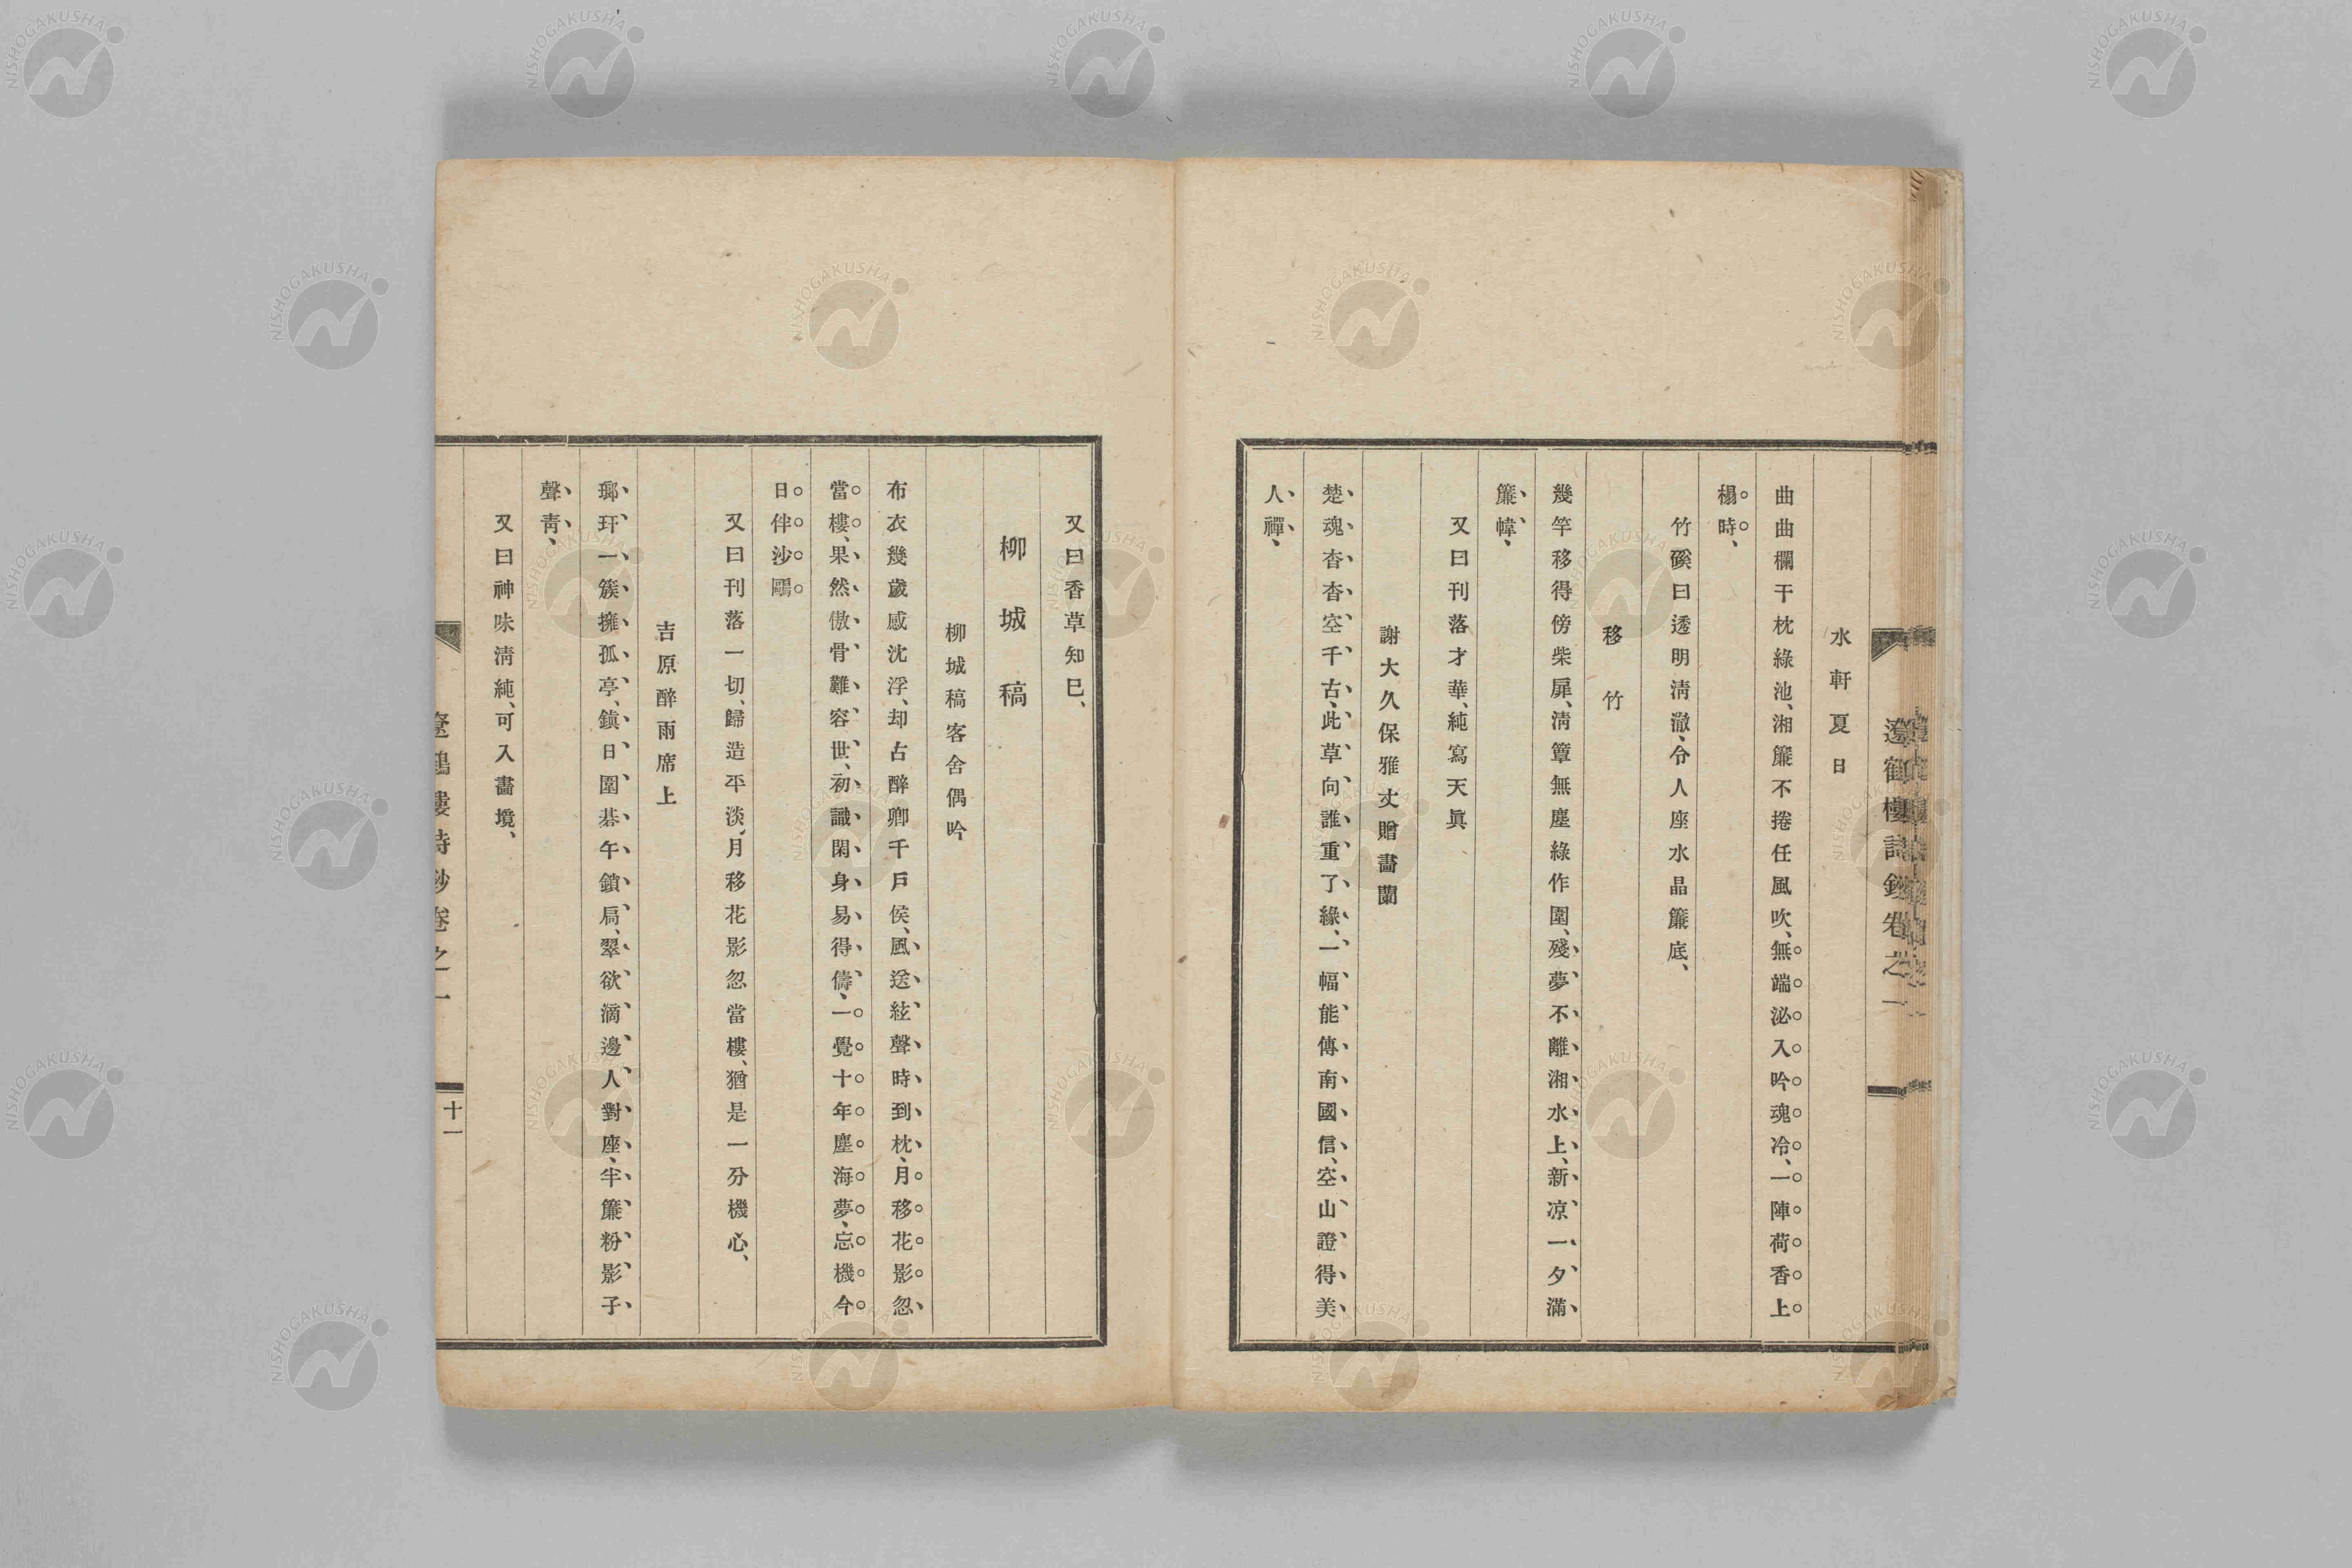 遼鶴樓詩鈔卷之一
水軒夏日
曲曲欄干枕綠池、湘簾不捲任風吹、無端泌入吟魂冷、一陣荷香上
榻時、
竹磎曰透明淸澈、令人座水晶簾底、
移竹
幾竿移得傍柴扉、淸簟無塵綠作圍、殘夢不離湘水上、新凉一夕滿
簾幃、
又曰刊落才華、純寫天眞
謝大久保雅丈贈畫蘭
楚魂杳杳空千古、此草向誰重了緣、一幅能傳南國信、空山證得美
人禪、
又曰香草知已、
柳城稿
柳城稿客舍偶吟
布衣幾歲感沈浮、却占醉鄕千戶侯、風送絃聲時到枕、月移花影忽
當樓、果然傲骨難容世、初識閑身易得儔、一覺十年塵海夢、忘機今
日伴沙鷗
又曰刊落一切、歸造平淡、月移花影忽當樓、猶是一分機心、
吉原醉雨席上
瑯玕一簇擁孤亭、鎭日圍碁午鎖扃、翠欲滴邊人對座、半簾粉影子
聲靑、
又曰神味淸純、可入畫境、
遼鶴樓詩鈔卷之一
十一
NISHOGAKUSHA